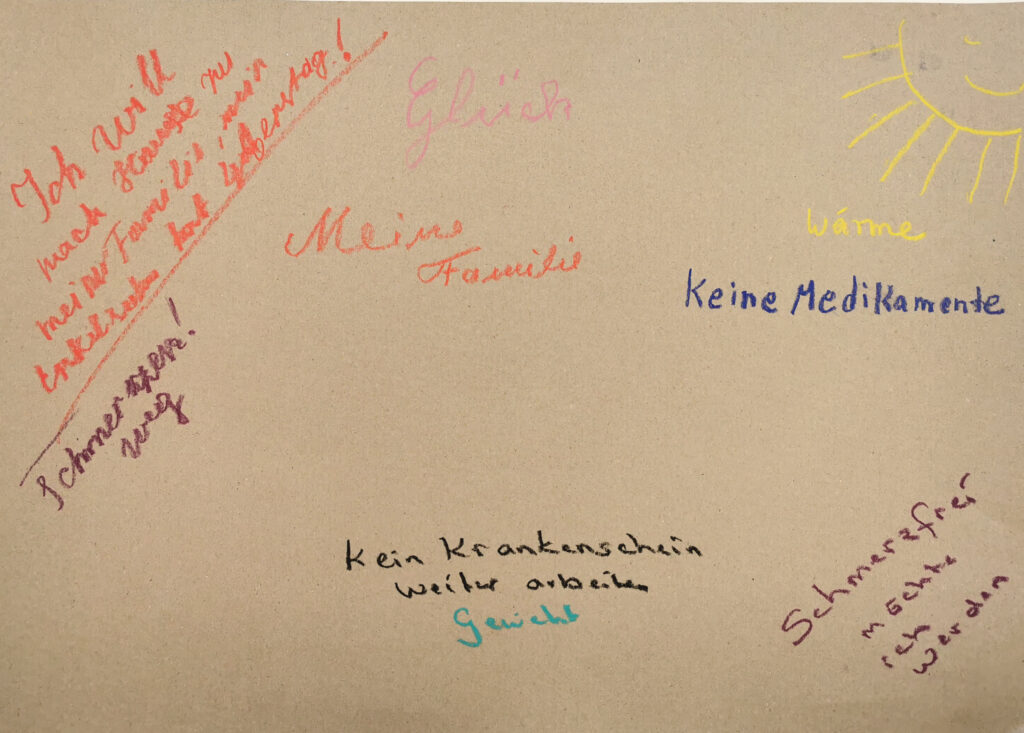 Ich will
nach Hause zu
meiner Familie, mein
Enkelsohn hat Geburtstag!
Schmerzen!
weg
Glück
Meine
Familie
Wärme
Keine Medikamente
Kein Krankenschein
weiter arbeiten
Gewicht
Schmerzfrei
möchte
ich
werden